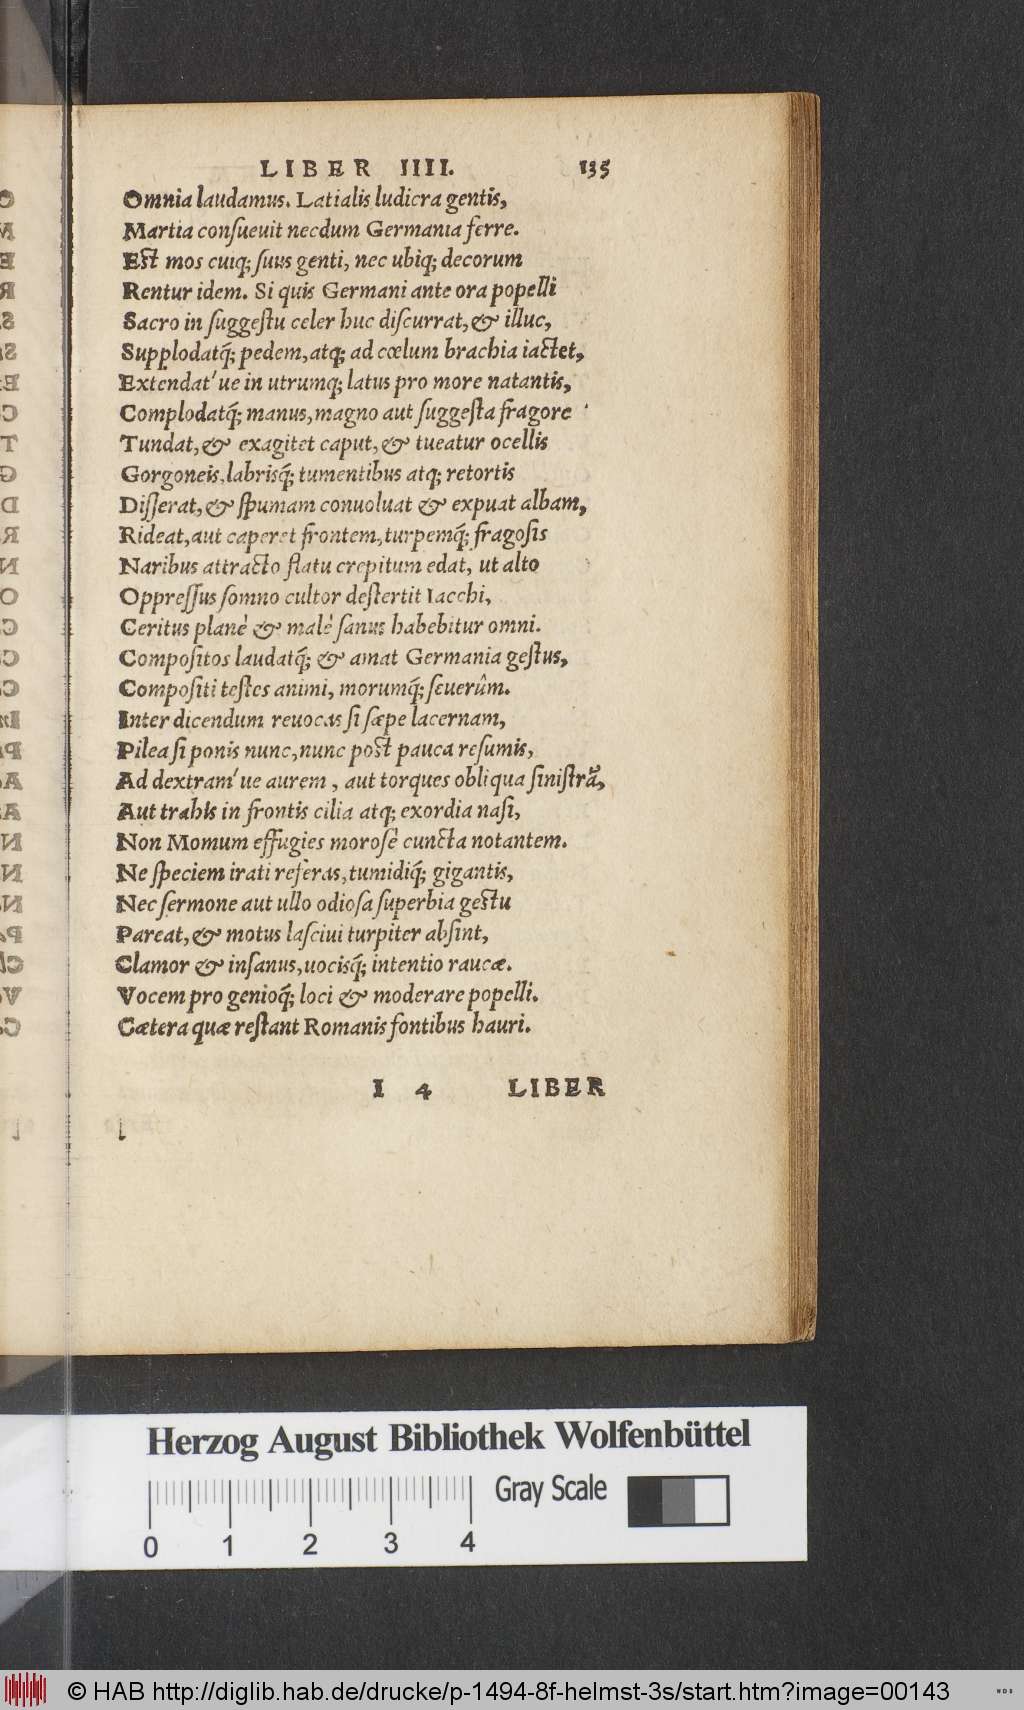 LIBER IIII. 135
Omnia laudamus. Latialis ludicra gentis,
Martia consueuit necdum Germania ferre.
Est mos cuiq; suus genti, nec ubiq; decorum
Rentur idem. Si quis Germani ante ora popelli
Sacro in suggestu celer huc discurrat, & illuc,
Supplodatq́; pedem, atq; ad cœlum brachia iactet,
Extendat'ue in utrumq; latus pro more natantis,
Complodatq́; manus, magno aut suggesta fragore
Tundat, & exagitet caput, & tueatur ocellis
Gorgoneis, labrisq́; tumentibus atq; retortis
Disserat, & spumam conuoluat & expuat albam,
Rideat, aut caperet frontem, turpemq́; fragosis
Naribus attracto flatu crepitum edat, ut alto
Oppressus somno cultor destertit Iacchi,
Ceritus planè & malè sanus habebitur omni.
Compositos laudatq́; & amat Germania gestus,
Compositi testes animi, morumq́; seuerûm.
Inter dicendum reuocas si sæpe lacernam,
Pilea si ponis nunc, nunc post pauca resumis,
Ad dextram'ue aurem, aut torques obliqua sinistrã,
Aut trahis in frontis cilia atq; exordia nasi,
Non Momum effugies morosè cuncta notantem.
Ne speciem irati referas, tumidiq́; gigantis,
Nec sermone aut ullo odiosa superbia gestu
Pareat, & motus lasciui turpiter absint,
Clamor & insanus, uocisq́; intentio raucæ.
Vocem pro genioq́; loci & moderare popelli.
Cætera quæ restant Romanis fontibus hauri.
I 4 LIBER
Herzog August Bibliothek Wolfenbüttel
Gray Scale
0 1 2 3 4
© HAB http://diglib.hab.de/drucke/p-1494-8f-helmst-3s/start.htm?image=00143
WDB